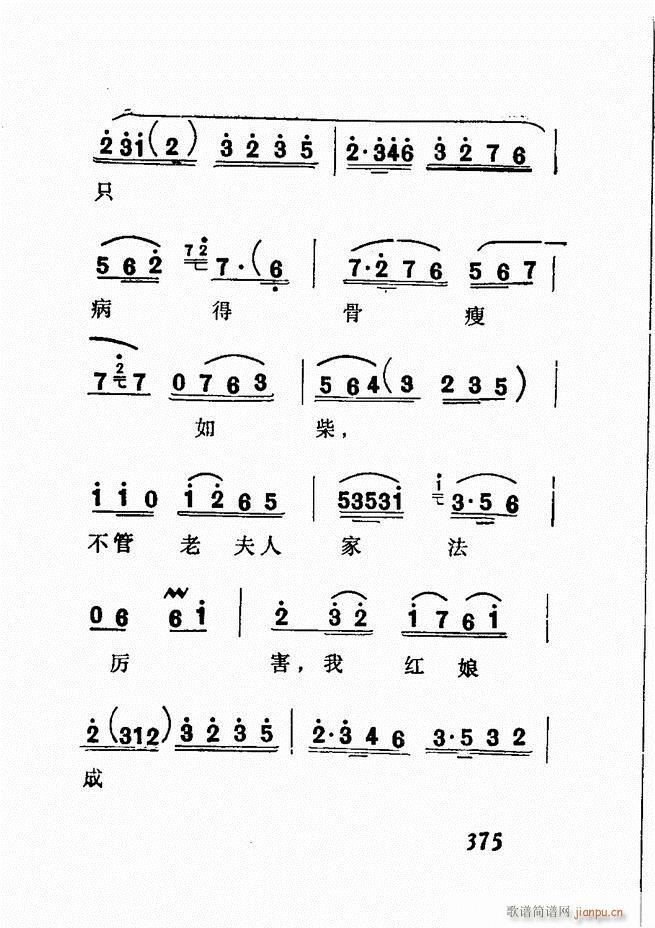 2̇3̇i(2̇) 3̇2̇3̇5̇ | 2̇·3̇4̇6̇ 3̇2̇76 |
只
562̇ 72̇ 7·(6̣ | 7·2̇76 567 |
病 得 骨 瘦
7 2̇ 7 0763 | 564(3 235) |
如 柴，
i̇i̇0 i̇2̇65 | 53531̇ 1̇ 3·56 |
不管 老夫人 家 法
06 6i̇ | 2̇ 3̇2̇ i̇76i̇ |
厉 害，我 红娘
2̇(312) 3̇2̇3̇5̇ | 2̇·3̇46 3·532 |
成
375
歌谱简谱网 jianpu.cn